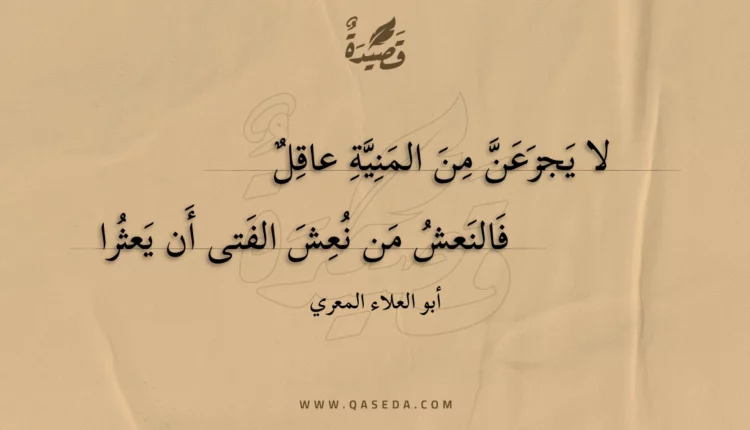 قَصِيدَةٌ
لا يَجزَعَنَّ مِنَ المَنِيَّةِ عاقِلٌ
فَالنَعشُ مَن نُعِشَ الفَتى أَن يَعثُرا
أبو العلاء المعري
WWW.QASEDA.COM